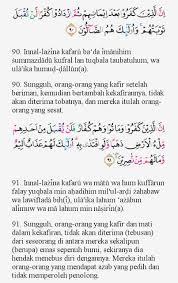 إِنَّ الَّذِينَ كَفَرُوا بَعْدَ إِيمَانِهِمْ ثُمَّ ازْدَادُوا كُفْرًا لَّن تُقْبَلَ
تَوْبَتُهُمْ وَأُولَٰئِكَ هُمُ الضَّالُّونَ
90. Innal-lażīna kafarū ba‘da īmānihim
ṡummazdādū kufral lan tuqbala taubatuhum, wa
ulā'ika humuḍ-ḍāllūn(a).
90. Sungguh, orang-orang yang kafir setelah
beriman, kemudian bertambah kekafirannya, tidak
akan diterima tobatnya, dan mereka itulah orang-
orang yang sesat.
إِنَّ الَّذِينَ كَفَرُوا وَمَاتُوا وَهُمْ كُفَّارٌ فَلَن يُقْبَلَ مِنْ أَحَدِهِم
مِّلْءُ الْأَرْضِ ذَهَبًا وَلَوِ افْتَدَىٰ بِهِ أُولَٰئِكَ لَهُمْ عَذَابٌ أَلِيمٌ
وَمَا لَهُم مِّن نَّاصِرِينَ
91. Innal-lażīna kafarū wa mātū wa hum kuffārun
falay yuqbala min aḥadihim mil'ul-arḍi żahabaw
wa lawiftadā bih(ī), ulā'ika lahum ‘ażābun
alīmuw wa mā lahum min nāṣirīn(a).
91. Sungguh, orang-orang yang kafir dan mati
dalam kekafiran, tidak akan diterima (tebusan)
dari seseorang di antara mereka sekalipun
(berupa) emas sepenuh bumi, sekiranya dia
hendak menebus diri dengannya. Mereka itulah
orang-orang yang mendapat azab yang pedih dan
tidak memperoleh penolong.